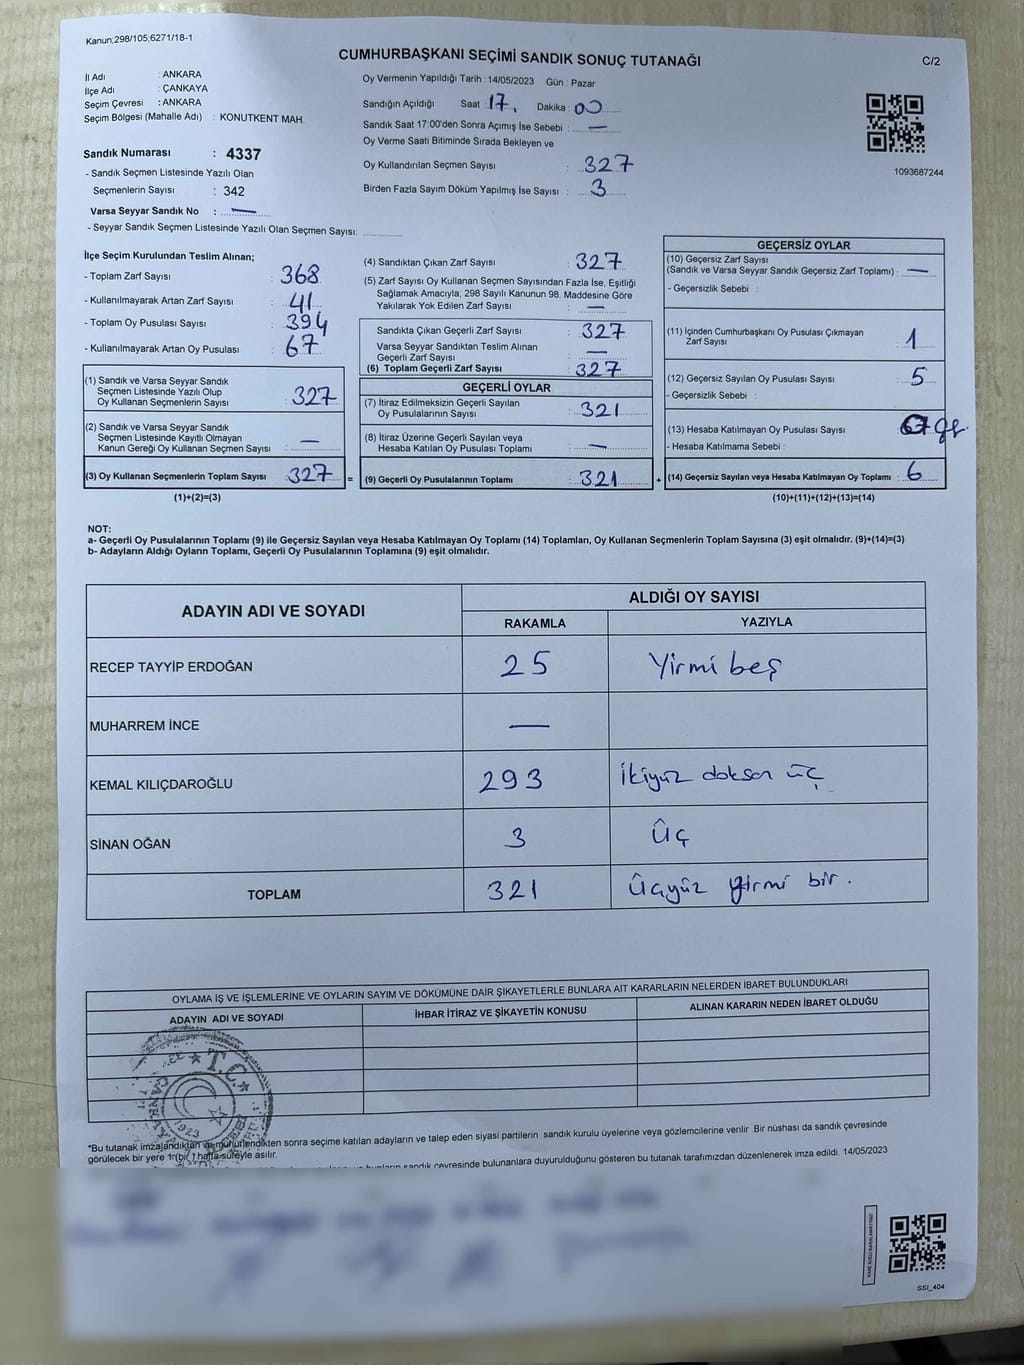 Kanun;298/105;6271/18-1
CUMHURBAŞKANI SEÇİMİ SANDIK SONUÇ TUTANAĞI
C/2
İl Adı : ANKARA
İlçe Adı : ÇANKAYA
Seçim Çevresi : ANKARA
Seçim Bölgesi (Mahalle Adı) : KONUTKENT MAH.
Oy Vermenin Yapıldığı Tarih : 14/05/2023 Gün : Pazar
Sandığın Açıldığı Saat : 17. Dakika : 00
Sandık Saat 17:00'den Sonra Açımış İse Sebebi : —
Oy Verme Saati Bitiminde Sırada Bekleyen ve
Oy Kullandırılan Seçmen Sayısı : 327
Birden Fazla Sayım Döküm Yapılmış İse Sayısı : 3
1093687244
Sandık Numarası : 4337
- Sandık Seçmen Listesinde Yazılı Olan
Seçmenlerin Sayısı : 342
Varsa Seyyar Sandık No : —
- Seyyar Sandık Seçmen Listesinde Yazılı Olan Seçmen Sayısı:
İlçe Seçim Kurulundan Teslim Alınan;
- Toplam Zarf Sayısı : 368
- Kullanılmayarak Artan Zarf Sayısı : 41
- Toplam Oy Pusulası Sayısı : 394
- Kullanılmayarak Artan Oy Pusulası : 67
(1) Sandık ve Varsa Seyyar Sandık
Seçmen Listesinde Yazılı Olup
Oy Kullanan Seçmenlerin Sayısı : 327
(2) Sandık ve Varsa Seyyar Sandık
Seçmen Listesinde Kayıtlı Olmayan
Kanun Gereği Oy Kullanan Seçmen Sayısı : —
(3) Oy Kullanan Seçmenlerin Toplam Sayısı : 327 =
(1)+(2)=(3)
(4) Sandıktan Çıkan Zarf Sayısı : 327
(5) Zarf Sayısı Oy Kullanan Seçmen Sayısından Fazla İse, Eşitliği
Sağlamak Amacıyla; 298 Sayılı Kanunun 98. Maddesine Göre
Yakılarak Yok Edilen Zarf Sayısı : —
Sandıkta Çıkan Geçerli Zarf Sayısı : 327
Varsa Seyyar Sandıktan Teslim Alınan
Geçerli Zarf Sayısı : —
(6) Toplam Geçerli Zarf Sayısı : 327
GEÇERLİ OYLAR
(7) İtiraz Edilmeksizin Geçerli Sayılan
Oy Pusulalarının Sayısı : 321
(8) İtiraz Üzerine Geçerli Sayılan veya
Hesaba Katılan Oy Pusulası Toplamı : —
(9) Geçerli Oy Pusulalarının Toplamı : 321 +
GEÇERSİZ OYLAR
(10) Geçersiz Zarf Sayısı
(Sandık ve Varsa Seyyar Sandık Geçersiz Zarf Toplamı) : —
- Geçersizlik Sebebi :
(11) İçinden Cumhurbaşkanı Oy Pusulası Çıkmayan
Zarf Sayısı : 1
(12) Geçersiz Sayılan Oy Pusulası Sayısı : 5
- Geçersizlik Sebebi :
(13) Hesaba Katılmayan Oy Pusulası Sayısı :
- Hesaba Katılmama Sebebi :
(14) Geçersiz Sayılan veya Hesaba Katılmayan Oy Toplamı : 6
(10)+(11)+(12)+(13)=(14)
NOT:
a- Geçerli Oy Pusulalarının Toplamı (9) ile Geçersiz Sayılan veya Hesaba Katılmayan Oy Toplamı (14) Toplamları, Oy Kullanan Seçmenlerin Toplam Sayısına (3) eşit olmalıdır. (9)+(14)=(3)
b- Adayların Aldığı Oyların Toplamı, Geçerli Oy Pusulalarının Toplamına (9) eşit olmalıdır.
ADAYIN ADI VE SOYADI
ALDIĞI OY SAYISI
RAKAMLA YAZIYLA
RECEP TAYYİP ERDOĞAN 25 Yirmi beş
MUHARREM İNCE —
KEMAL KILIÇDAROĞLU 293 ikiyüz doksan üç
SİNAN OĞAN 3 üç
TOPLAM 321 üçyüz yirmi bir.
OYLAMA İŞ VE İŞLEMLERİNE VE OYLARIN SAYIM VE DÖKÜMÜNE DAİR ŞİKAYETLERLE BUNLARA AİT KARARLARIN NELERDEN İBARET BULUNDUKLARI
ADAYIN ADI VE SOYADI İHBAR İTİRAZ VE ŞİKAYETİN KONUSU ALINAN KARARIN NEDEN İBARET OLDUĞU
T.C.
1923
*Bu tutanak imzalandıktan ve mühürlendikten sonra seçime katılan adayların ve talep eden siyasi partilerin sandık kurulu üyelerine veya gözlemcilerine verilir. Bir nüshası da sandık çevresinde
görülecek bir yere 1 (bir ) hafta süreyle asılır.
sandık çevresinde bulunanlara duyurulduğunu gösteren bu tutanak tarafımızdan düzenlenerek imza edildi. 14/05/2023
SSI_404